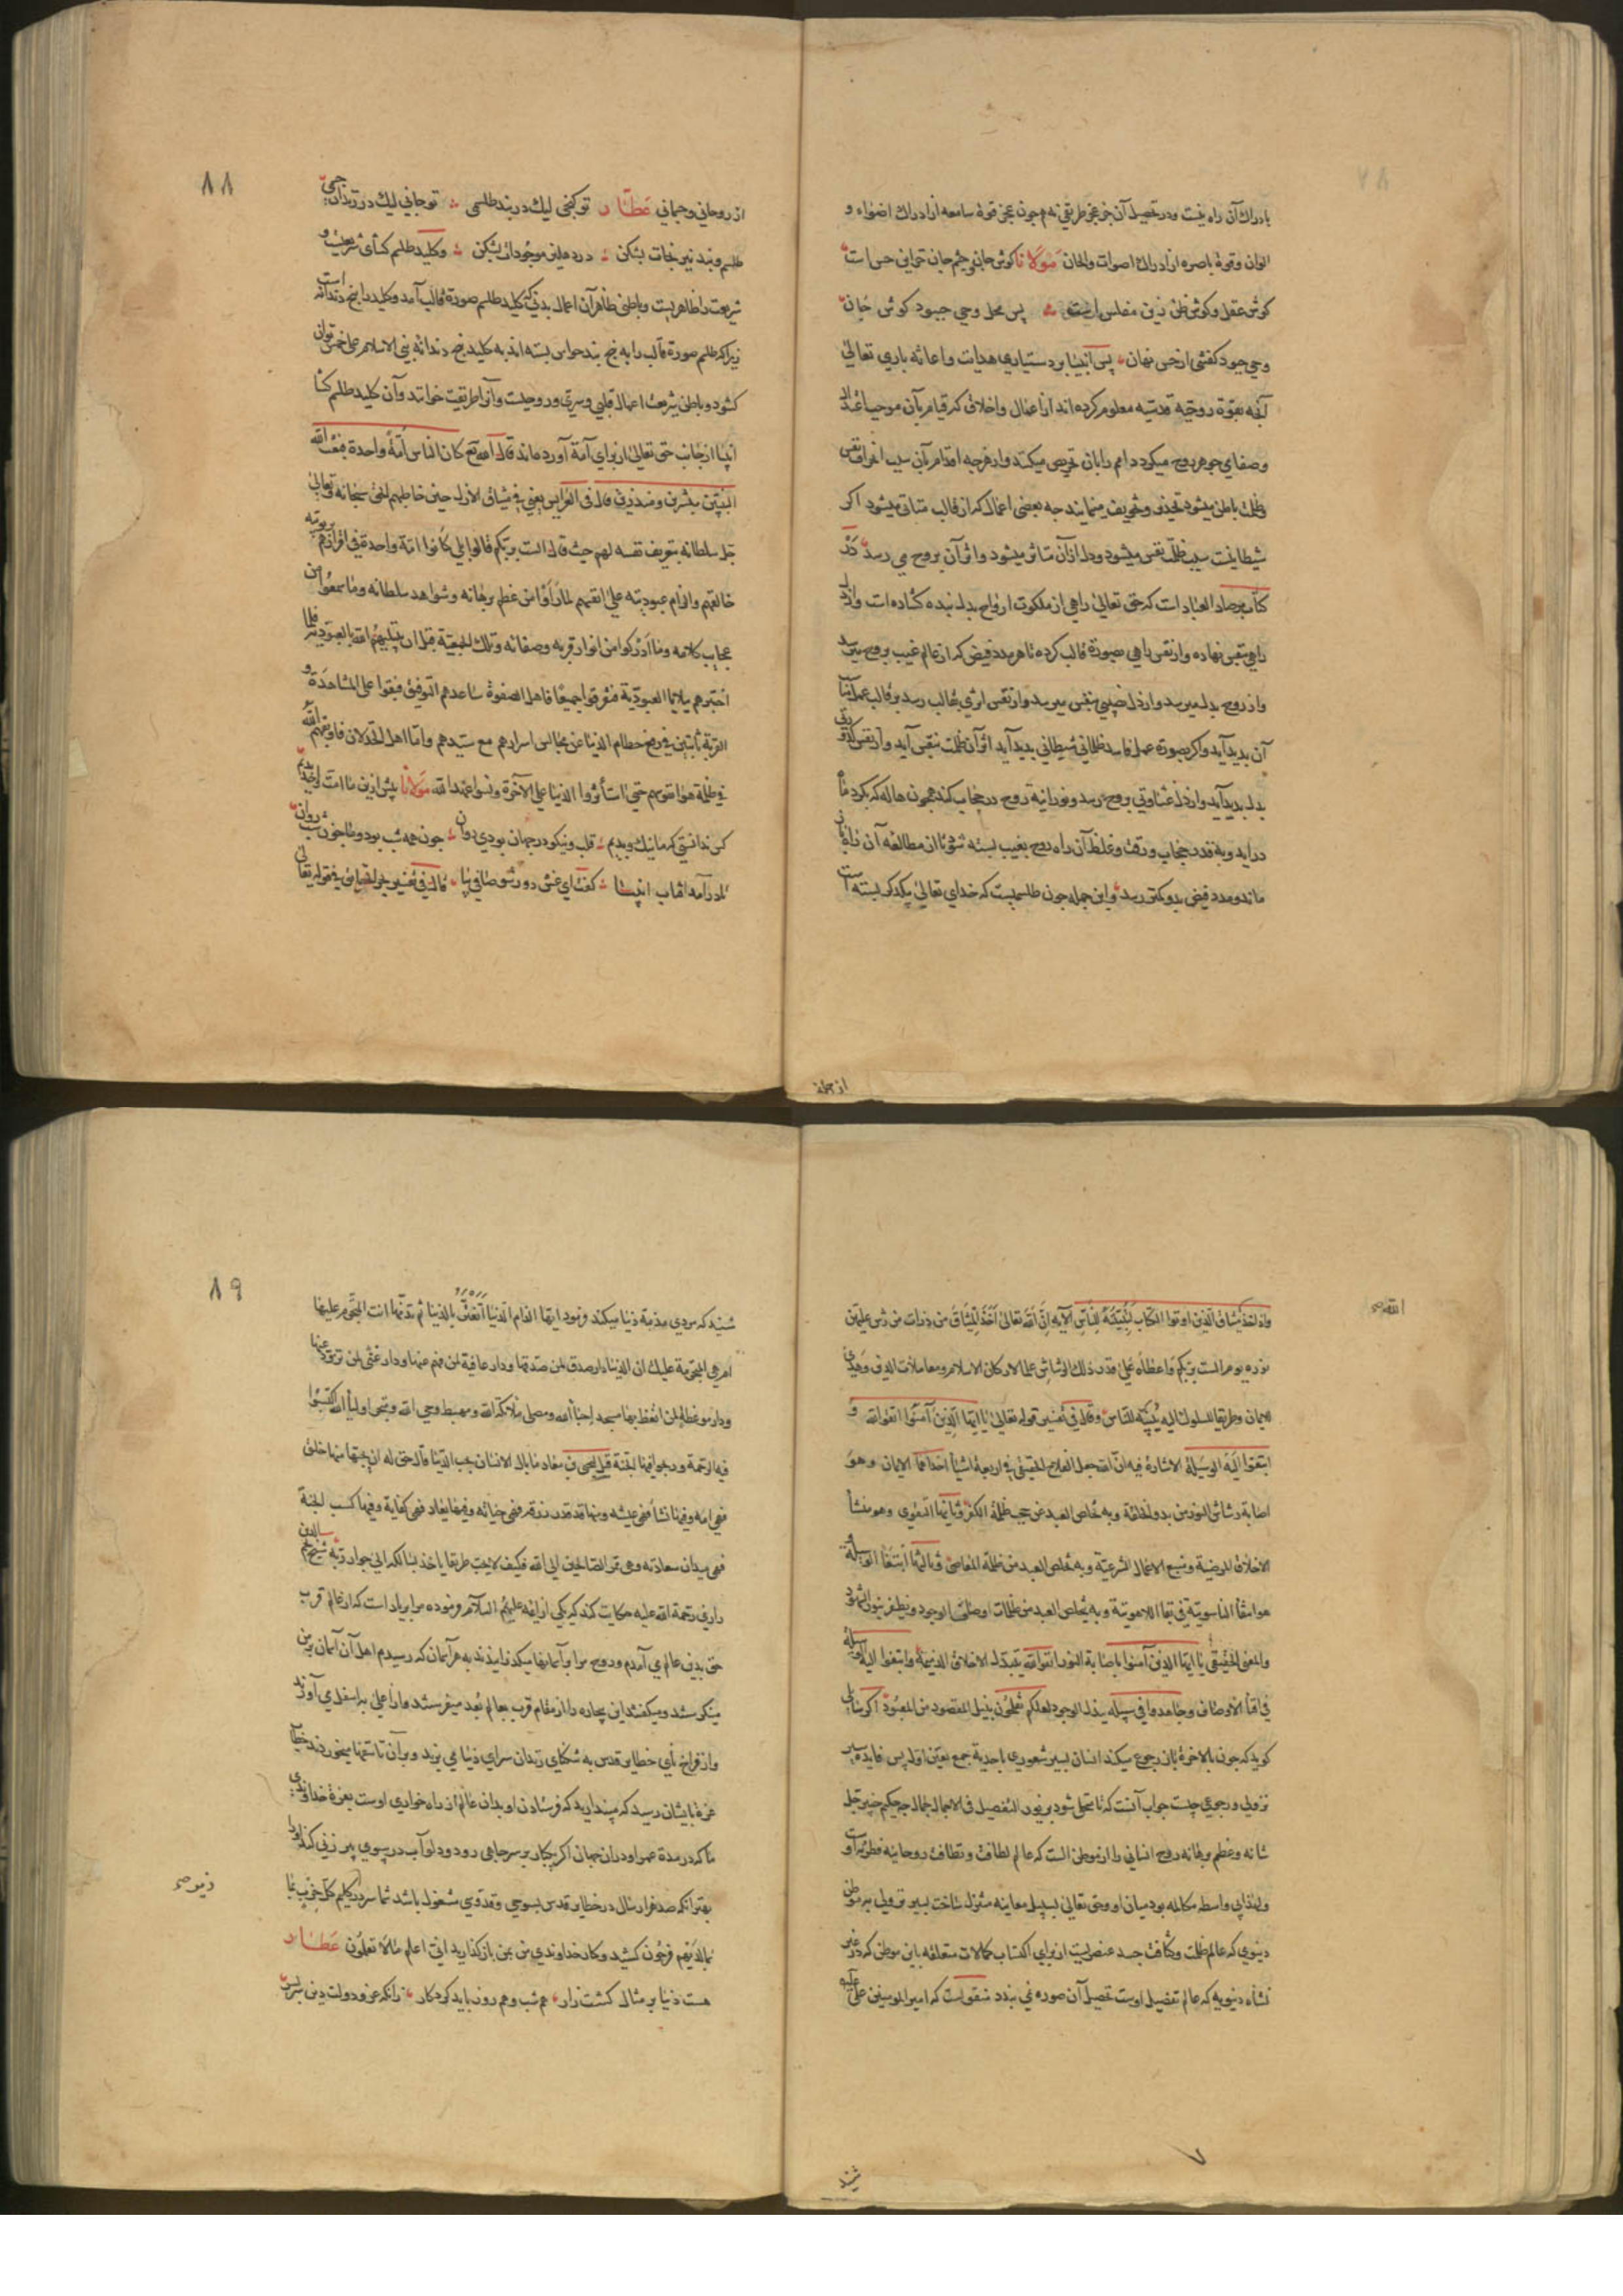 بادراك آن راه نیست ودر تحصیل آن جز عجز طریقی نه همچون عجز قوة سامعه از ادراك اضواء و
الوان وقوة باصره از ادراك اصوات والحان مولانا کوش جان وچشم جان جز این حس است
کوش عقل وکوش ظن زین مفلس است پس محل وحی جبود کوش جان
وحی جبود کفتی از حس نهان پس انبیا بر دستیاری هدایت واعانه باری تعالی
آنچه بقوة روحیه قدسیه معلوم کرده اند از اعمال واخلاق که قیام بآن موجب
وصفای جوهر روح میکردد امم را بآن تحریص میکنند واز هرچه اقدام بآن سبب نقص
وظلت باطن میشود تحذیر وتخویف مینمایند چه بعضی اعمال که از قالب میشود اکر
شیطانیست سبب ظلت نفس میشود ودل از آن متاثر میشود واثر آن بروح می رسد در
کتاب مرصاد العباد است که حق تعالی راهی از ملکوت ارواح بدل بنده کشاده است واز دل
راهی بنفس نهاده واز نفس راهی بصورة قالب کرده تا هر مدد فیض که از عالم غیب بروح میرسد
واز روح بدل میرسد واز دل نصیبی بنفس میرسد واز نفس اثری بقالب رسد بر قالب عمل
آن بدید آید واکر بصورة عمل فاسد ظلمانی شیطانی بدید آید اثر آن ظلت بنفس آید واز نفس
بدل بدید آید واز دل غشاوتی بروح رسد ونورانیة روح در حجاب کند همچون هاله که بکرد ماه
در آید وبه قدر حجاب ورقت وغلظ آن راه روح بغیب بسته شود تا از مطالعه آن
ماند ومدد فیض بدو کمتر رسد واین جمله چون طلسمیست که خدای تعالی بیکدیکر بسته است
از جمله
٨٨
از روحانی وجسمانی عطار تو کنجی لیك در بند طلسمی تو جانی لیك در زندان جسمی
طلسم وبند نیرنجات بشکن در دهلیز موجودات بشکن وکلید طلسم کشای شریعت و
شریعت را ظاهریست وباطنی ظاهر آن اعمال بدنی که کلید طلسم صورة قالب آمد وکلید را پنج دندانه است
زیرا که طلسم صورة قالب را به پنج بند حواس بسته اند به کلید پنج دندانه بنی الاسلام علی خمس توان
کشود وباطن شریعت اعمال قلبی وسری وروحیست وآنرا طریقت خوانند وآن کلید طلسم کشا
انبیا از جانب حق تعالی از برای امة آورده اند قال الله تع کان الناس امة واحدة فبعث الله
النبیین مبشرین ومنذرین قال فی العرایس یعنی فی میثاق الازل حین خاطبهم الحق سبحانه وتعالی
جل سلطانه بتعریف نفسه لهم حیث قال الست بربکم قالوا بلی کانوا امة واحدة فی اقرارهم بربوبیة
خالقهم والزام عبودیته علی انفسهم لما رأوا من عظم برهانه وشواهد سلطانه وما سمعوا من
عجایب کلامه وما ادرکوا من انوار قربه وصفاته وتلك الجمعیة قبل ان یبتلیهم الله بالعبودیة فلما
اختبرهم ببلایا العبودیة فتفرقوا جمیعا فاهل الصفوة ساعدهم التوفیق فبقوا علی المشاهدة و
القربة ثابتین فی رفض حطام الدنیا عن مجالس اسرارهم مع سیدهم واما اهل الخذلان فاوقعهم الله
فی ظلمة هوا نفوسهم حتی استأثروا الدنیا علی الآخرة ونسوا عهد الله مولانا پیش ازین ما امت واحد بدیم
کس ندانستی که ما نیك وبدیم قلب ونیکو در جهان بودی روان چون همه شب بود وما چون شب روان
تا بر آمد افتاب انبیا کفت ای غش دور شو صافی بیا قال فی تفسیر فی قوله تعالی
واذ اخذ الله میثاق الذین اوتوا الکتاب لتبیننه للناس الآیه ان الله تعالی اخذ المیثاق من ذرات من رش علیهم
نوره یوم الست بربکم واعطاه علی قدر ذلك الرشاش علما لادراکات الاسلام ومعاملات الدین
الایمان وطریقا للسلوك الیه لیبینه للناس وقال فی تفسیر قوله تعالی یا ایها الذین آمنوا اتقوا الله و
ابتغوا الیه الوسیلة الاشارة فیه ان الله جعل الفلاح الحقیقی فی اربعة اشیاء احدها الایمان وهو
اصابة رشاش النور من بدو الخلقة وبه تخلص العبد من حجب ظلمة الکفر وثانیها التقوی وهو منشأ
الاخلاق المرضیة ومنبع الاعمال الشرعیة وبه تخلص العبد من ظلمة المعاصی وثالثها ابتغاء الوسیلة
هو افناء الناسوتیة فی بقاء اللاهوتیة وبه یخلص العبد من ظلمات اوصاف الوجود ویظفر بنور الشهود
والمعنی الحقیقی یا ایها الذین آمنوا باصابة النور اتقوا الله بتبدل الاخلاق الذمیمة وابتغوا الیه الوسیلة
فی افناء الاوصاف وجاهدوا فی سبیله ببذل الوجود لعلکم تفلحون بنیل المقصود من المعبود اکر سائلی
کوید که چون بالاخرة باز رجوع میکند انسان بسیر شعوری باحدیة جمع تعین اول پس فایده سیر
نزولی ورجوعی چیست جواب آنست که تا متجلی شود بزیور التفصیل فی الاجمال چه حکیم خبیر جل
شانه وعظم برهانه روح انسانی را از موطن الست که عالم لطافت ونظافت روحانیه فطریه اوست
ولهذا بی واسطه مکالمه بود میان او وحق تعالی بسبیل معاینه متنزل ساخت بسیر نزولی بر موطن
دنیوی که عالم ظلمت وکثافت جسد عنصریست از برای اکتساب کمالات متعلقه باین موطن که در غیر
نشاه دنیویه که عالم تفصیل اوست تحصیل آن صورة نمی بندد منقولست که امیر المومنین علی علیه
شنید
٨٩
شنید که مردی مذمة دنیا میکند فرمود ایها الذام الدنیا اتغتر بالدنیا ثم تذمها انت المتجرم علیها
ام هی المتجرمة علیك ان الدنیا دار صدق لمن صدقها ودار عافیة لمن فهم عنها ودار غنی لمن تزود منها
ودار موعظة لمن اتعظ بها مسجد احباء الله ومصلی ملائکة الله ومهبط وحی الله ومتجر اولیاء الله اکتسبوا
فیها الرحمة وربحوا فیها الجنة قیل لیحیی بن معاذ ما بال الانسان یحب الدنیا قال حق له ان یحبها منها خلق
فهی امه وفیها نشأ فهی عیشه ومنها قدر رزقه فهی حیاته وفیها یعاد فهی کفایة وفیها کسب الجنة
فهی میدان سعادته وهی ممر الصالحین الی الله فکیف لا یحب طریقا یاخذ بسالکه الی جوار ربه شیخ نجم الدین
رازی رحمة الله علیه حکایت کند که یکی از ائمه علیهم السلام فرموده مرا بر یاد است که از عالم قرب
حق بدین عالم می آمدم وروح مرا بر آسمانها میکذرانیدند به هر آسمان که رسیدم اهل آن آسمان بر من
میکریستند ومیکفتند این بیچاره را از مقام قرب بعالم بعد میفرستند واز اعلی به اسفل می آورند
واز فراخ نای خطایر قدس به تنکنای زندان سرای دنیا می برند وبر آن تاسفها میخوردند خطاب
عزة بایشان رسید که مپندارید که فرستادن او بدان عالم از راه خواری اوست بعزة خداوندی
ما که در مدة عمر او در آن جهان اکر یکبار بر سر چاهی رود ودلو آب در سبوی پیر زنی کند او را
بهتر از آنکه صد هزار سال در خطایر قدس بسبوحی وقدوسی مشغول باشد شما سر در کلیم کل حزب بما
بما لدیهم فرحون کشید وکار خداوندی من بمن بازکذارید انی اعلم ما لا تعلمون عطار
هست دنیا بر مثال کشت زار هم شب وهم روز باید کرد کار زانکه عز ودولت دین سر بسر